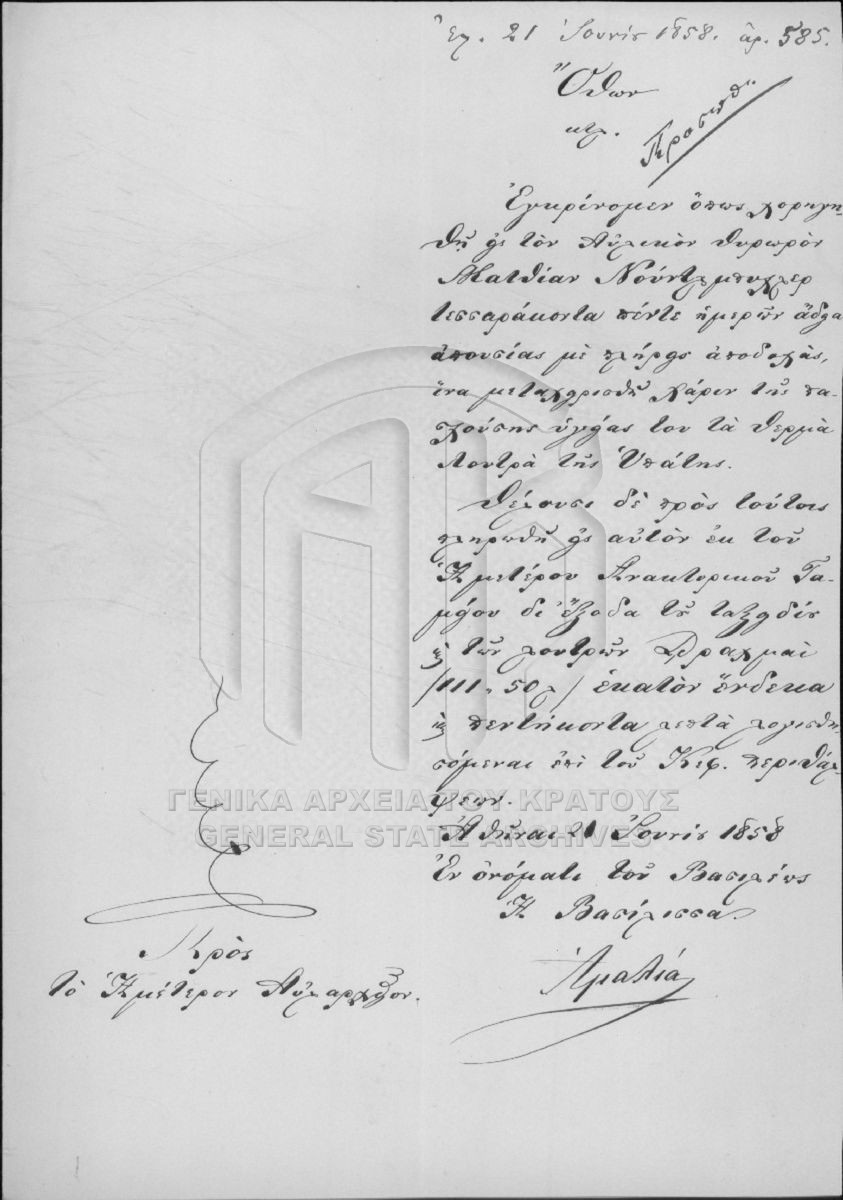 Ἐλ. 21 Ἰουνίου 1858. ἀρ. 585.
Ὄθων
κτλ.
Ἐγκρίνομεν ὅπως χορηγη-
θῇ εἰς τὸν Αὐλικὸν θυρωρὸν
Ματθίαν
τεσσαράκοντα πέντε ἡμερῶν ἄδεια
ἀπουσίας μὲ πλήρεις ἀποδοχὰς,
ἵνα μεταχειρισθῇ χάριν τῆς πα-
σχούσης ὑγείας του τὰ θερμὰ
λουτρὰ τῆς Ὑπάτης.
Θέλουσι δὲ πρὸς τούτοις
πληρωθῆ εἰς αὐτὸν ἐκ τοῦ
Ἡμετέρου Ἀνακτορικοῦ Τα-
μείου δι' ἔξοδα τοῦ ταξειδίου
καὶ τῶν λουτρῶν Δραχμαὶ
/111, 50λ/ ἑκατὸν ἕνδεκα
καὶ πεντήκοντα λεπτὰ λογισθη-
σόμεναι ἐπὶ τοῦ Κεφ. περιθάλ-
ψεων.
Ἀθῆναι 21 Ἰουνίου 1858
Ἐν ὀνόματι τοῦ Βασιλέως
Ἡ Βασίλισσα
Ἀμαλία
Πρὸς
τὸ Ἡμέτερον Αὐλαρχεῖον.
ΓΕΝΙΚΑ ΑΡΧΕΙΑ ΤΟΥ ΚΡΑΤΟΥΣ
GENERAL STATE ARCHIVES